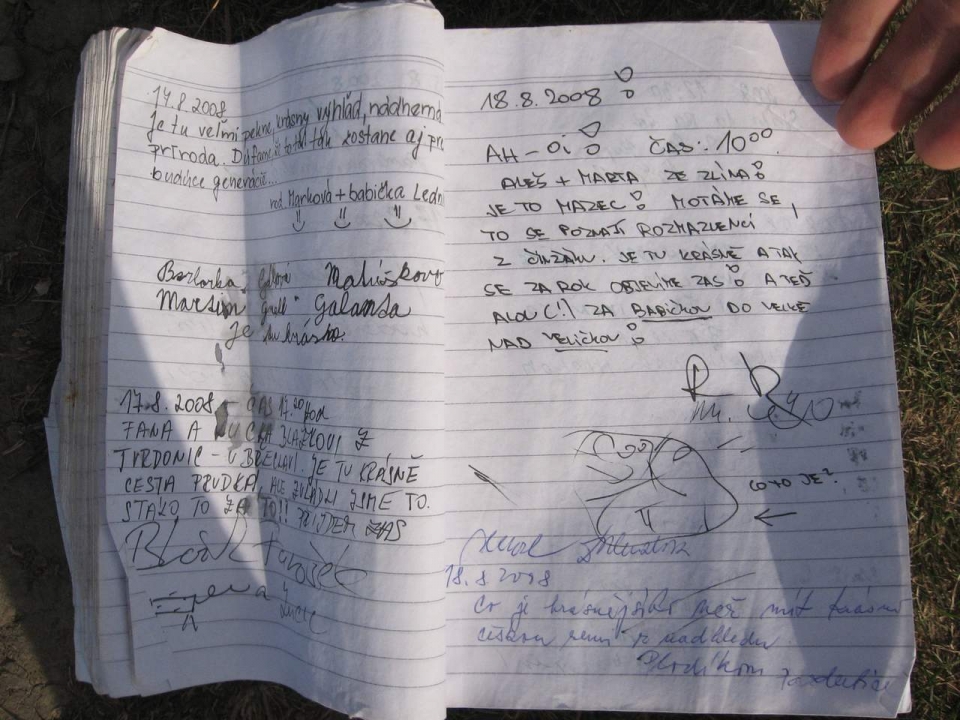 14.8 2008
Je tu veľmi pekne, krásny výhľad, nádherná
príroda. Dúfam, že to tak zostane aj pre
budúce generácie...
rod. Marková + babička Ledni
Maliníkovo
Galanda
Je tu krásko.
17.8. 2008 - ČAS 17.20 hod
FANA A BLAŽKOVI Z
TVRDONIC - U BŘECLAVI. JE TU KRÁSNĚ
CESTA PRUDKÁ, ALE ZVLÁDLI JSME TO.
STÁLO TO ZA TO!! ZAS
18.8.2008
AH-OJ! ČAS: 10⁰⁰
ALEŠ + MARTA ZE ZLÍNA!
JE TO MAZEC! MOTÁME SE,
TO SE POZNAJÍ ROZMAZLENCI
Z ČINŽÁKU. JE TU KRÁSNĚ A TAK
SE ZA ROK OBJEVÍME ZAS! A TEĎ
ALOU (!) ZA BABIČKOU DO VELKÉ
NAD VELIČKOU!
CO TO JE?
18.8 2008
Co je krásnějšího než mít krásnou
českou zemi z nadhledu